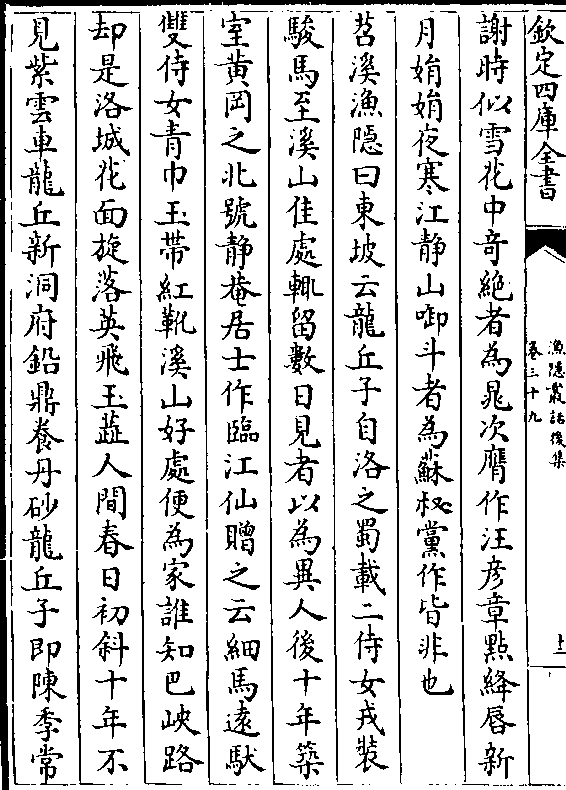 欽定四庫全書
漁隱叢話後集
卷三十九
十二
謝時似雪花中奇絶者為晁次膺作汪彦章點絳唇新
月娟娟夜寒江静山啣斗者為蘇叔黨作皆非也
苕溪漁隱曰東坡云龍丘子自洛之蜀載二侍女戎裝
駿馬至溪山佳處輒留數日見者以為異人後十年築
室黄岡之北號静菴居士作臨江仙贈之云細馬逺馱
雙侍女青巾玉帶紅靴溪山好處便為家誰知巴峽路
却是洛城花面旋落英飛玉蕋人間春日初斜十年不
見紫雲車龍丘新洞府鉛鼎養丹砂龍丘子即陳季常